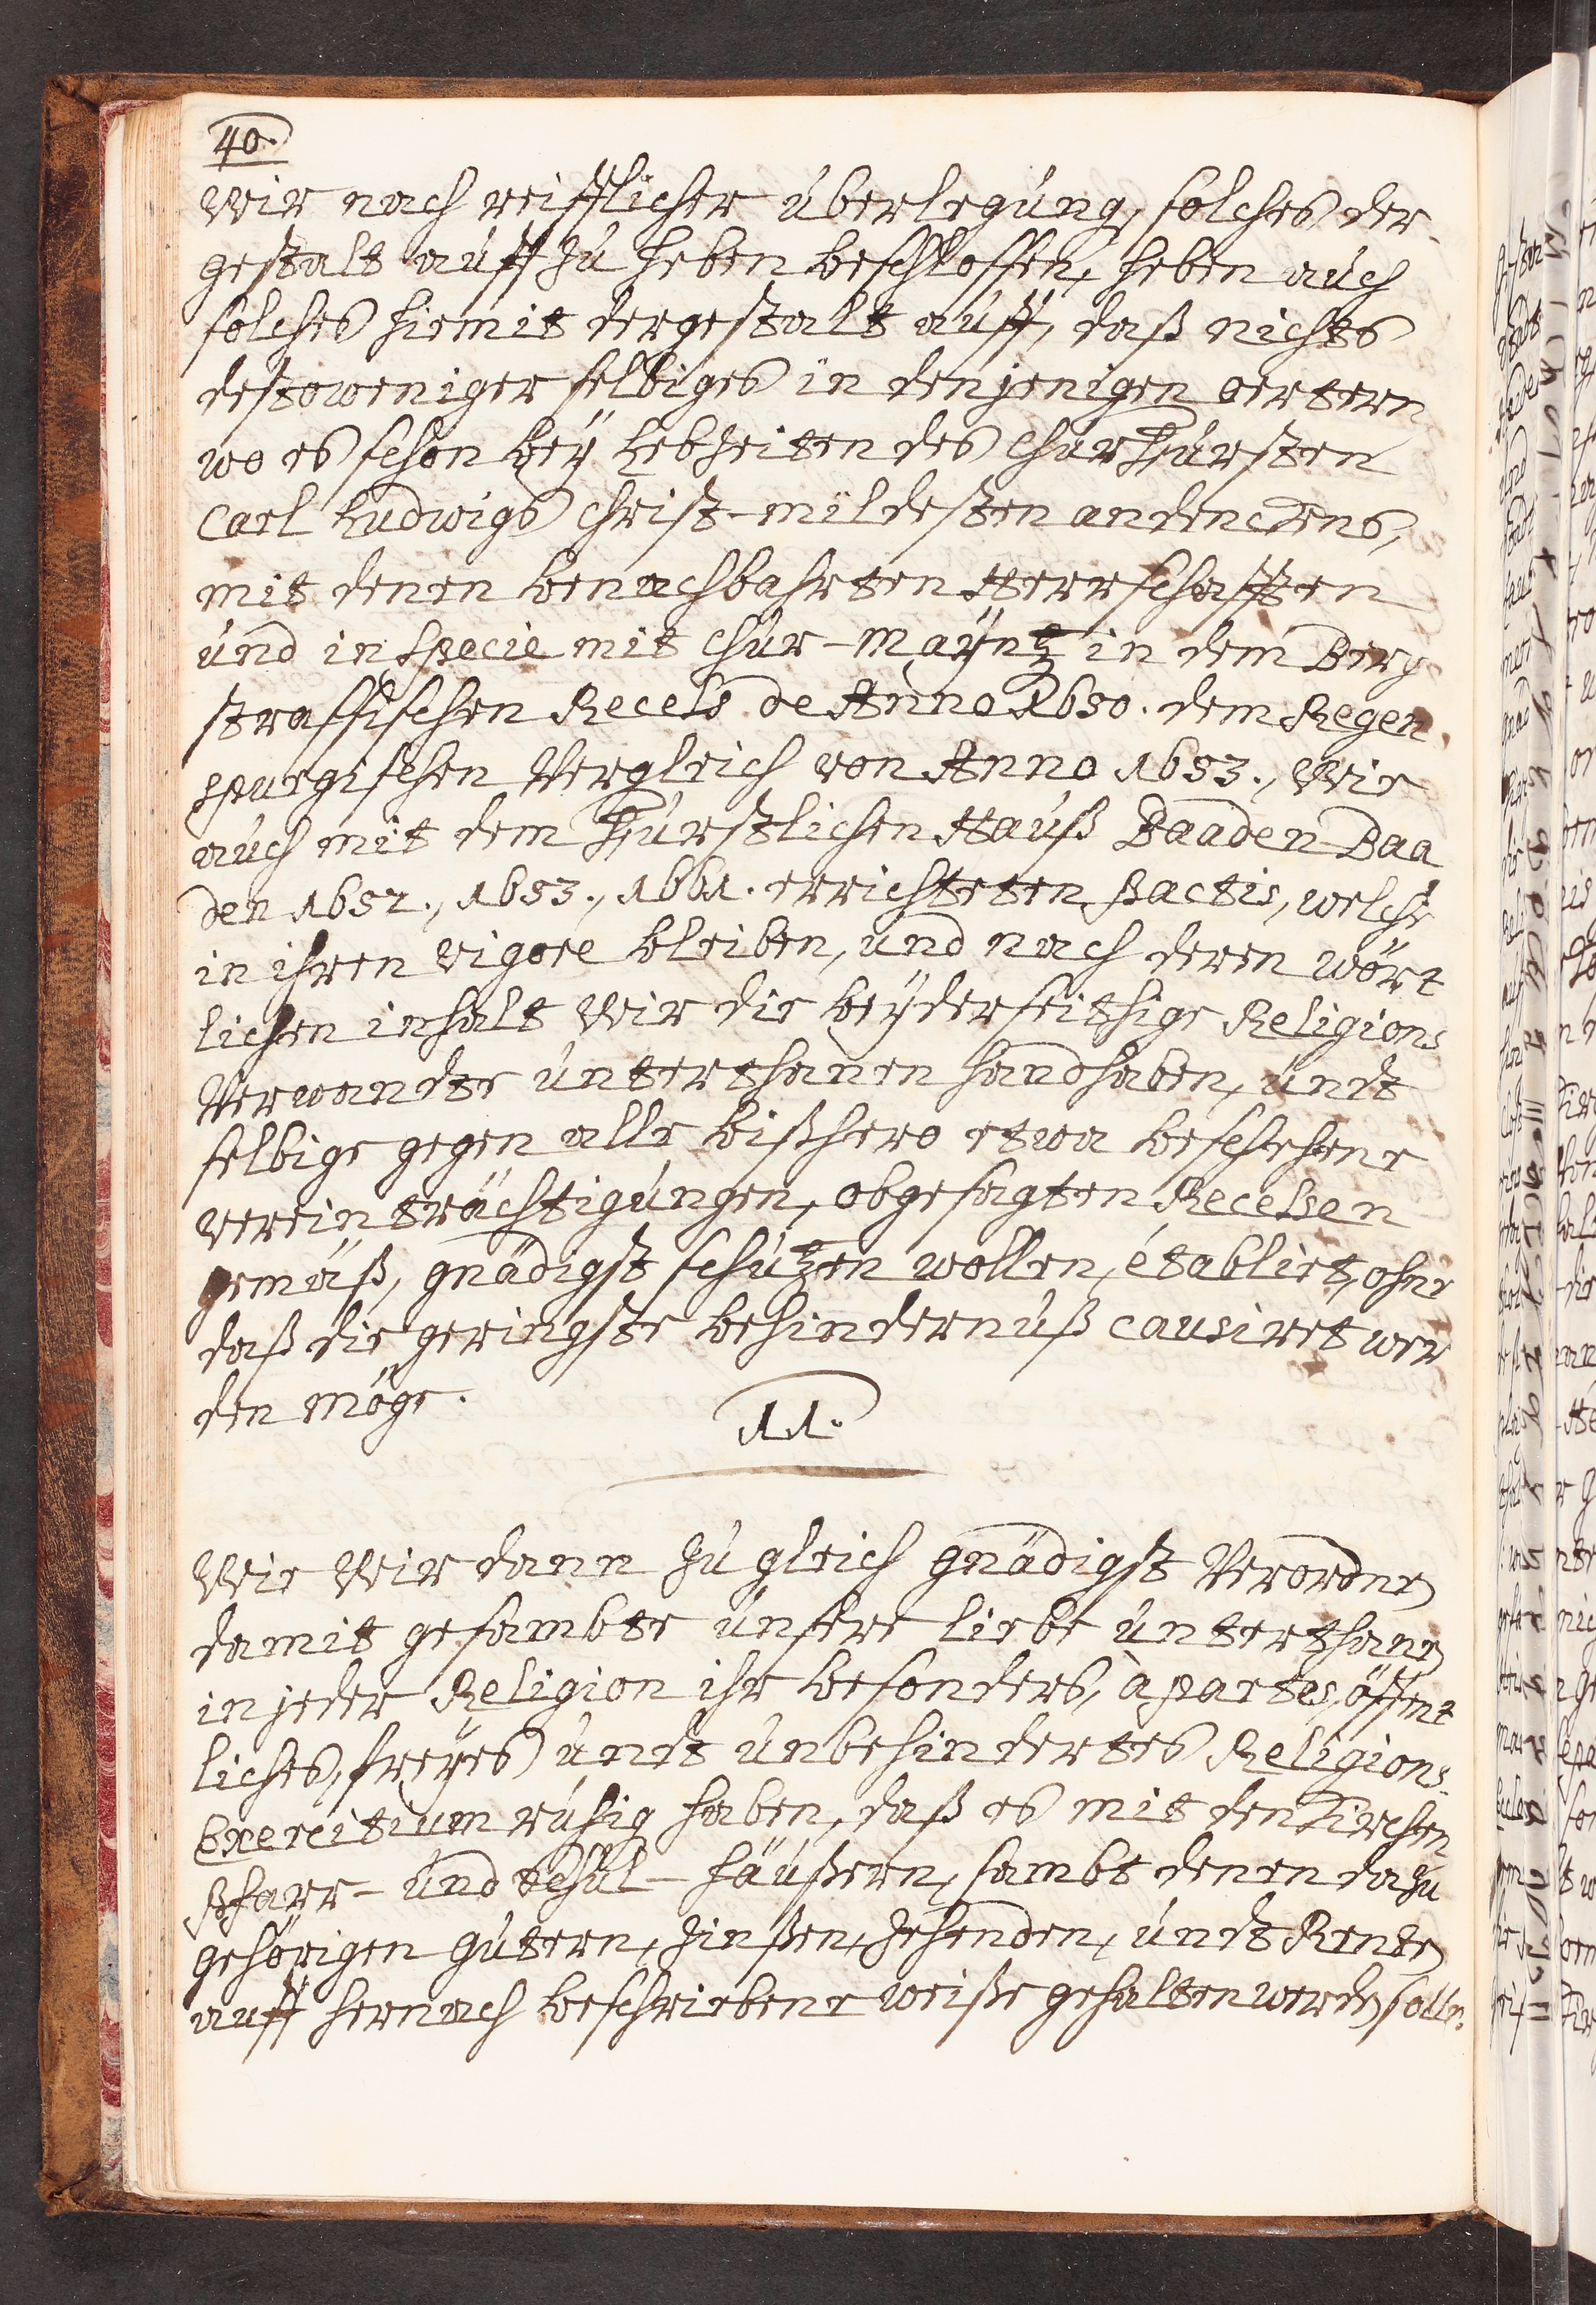 40.
Wir nach reifflicher überlegung, solches der
gestalt auff zu heben beschlossen, heben auch
solches hiemit dergestalt auff, daß nichts
destoweniger selbiges in denjenigen oertern
wo es schon bey Lebzeiten des ChurFürsten
Carl Ludwigs Christ-mildesten andenckens,
mit denen benachbahrten Herrschafften
und in specie mit Chur-Mayntz in dem Berg
strassischen Recess de Anno 1650. dem Regen
spurgischen Vergleich von Anno 1653., Wie
auch mit dem Fürstlichen Hauß Baaden-Baa
den 1652., 1653., 1661. errichteten Pactis, welche
in ihren vigore bleiben, und nach deren wört
lichen inhalt Wir die beyderseithige Religions
Verwandte unterthanen handhaben, undt
selbige gegen alle bißhero etwa beschehene
vereinträchtigungen, obgesagten Recessen
gemäß, gnädigst schützen wollen, établirt, ohne
daß die geringste behindernuß causiret wer
den möge.
11.
Wie Wir dann zu gleich gnädigst Verordnen
damit gesambte unsere liebe unterthanen
in jeder Religion ihr besonders, àpartes, öffent
liches, freyes undt unbehindertes Religions
Exercitium ruhig haben, daß es mit den Kirchen
Pfarr- und Schul-häußern, sambt denen dazu
gehörigen gutern, Zinßen, Zehenden, undt Renten
auff hernach beschriebene weiße gehalten werden solle.